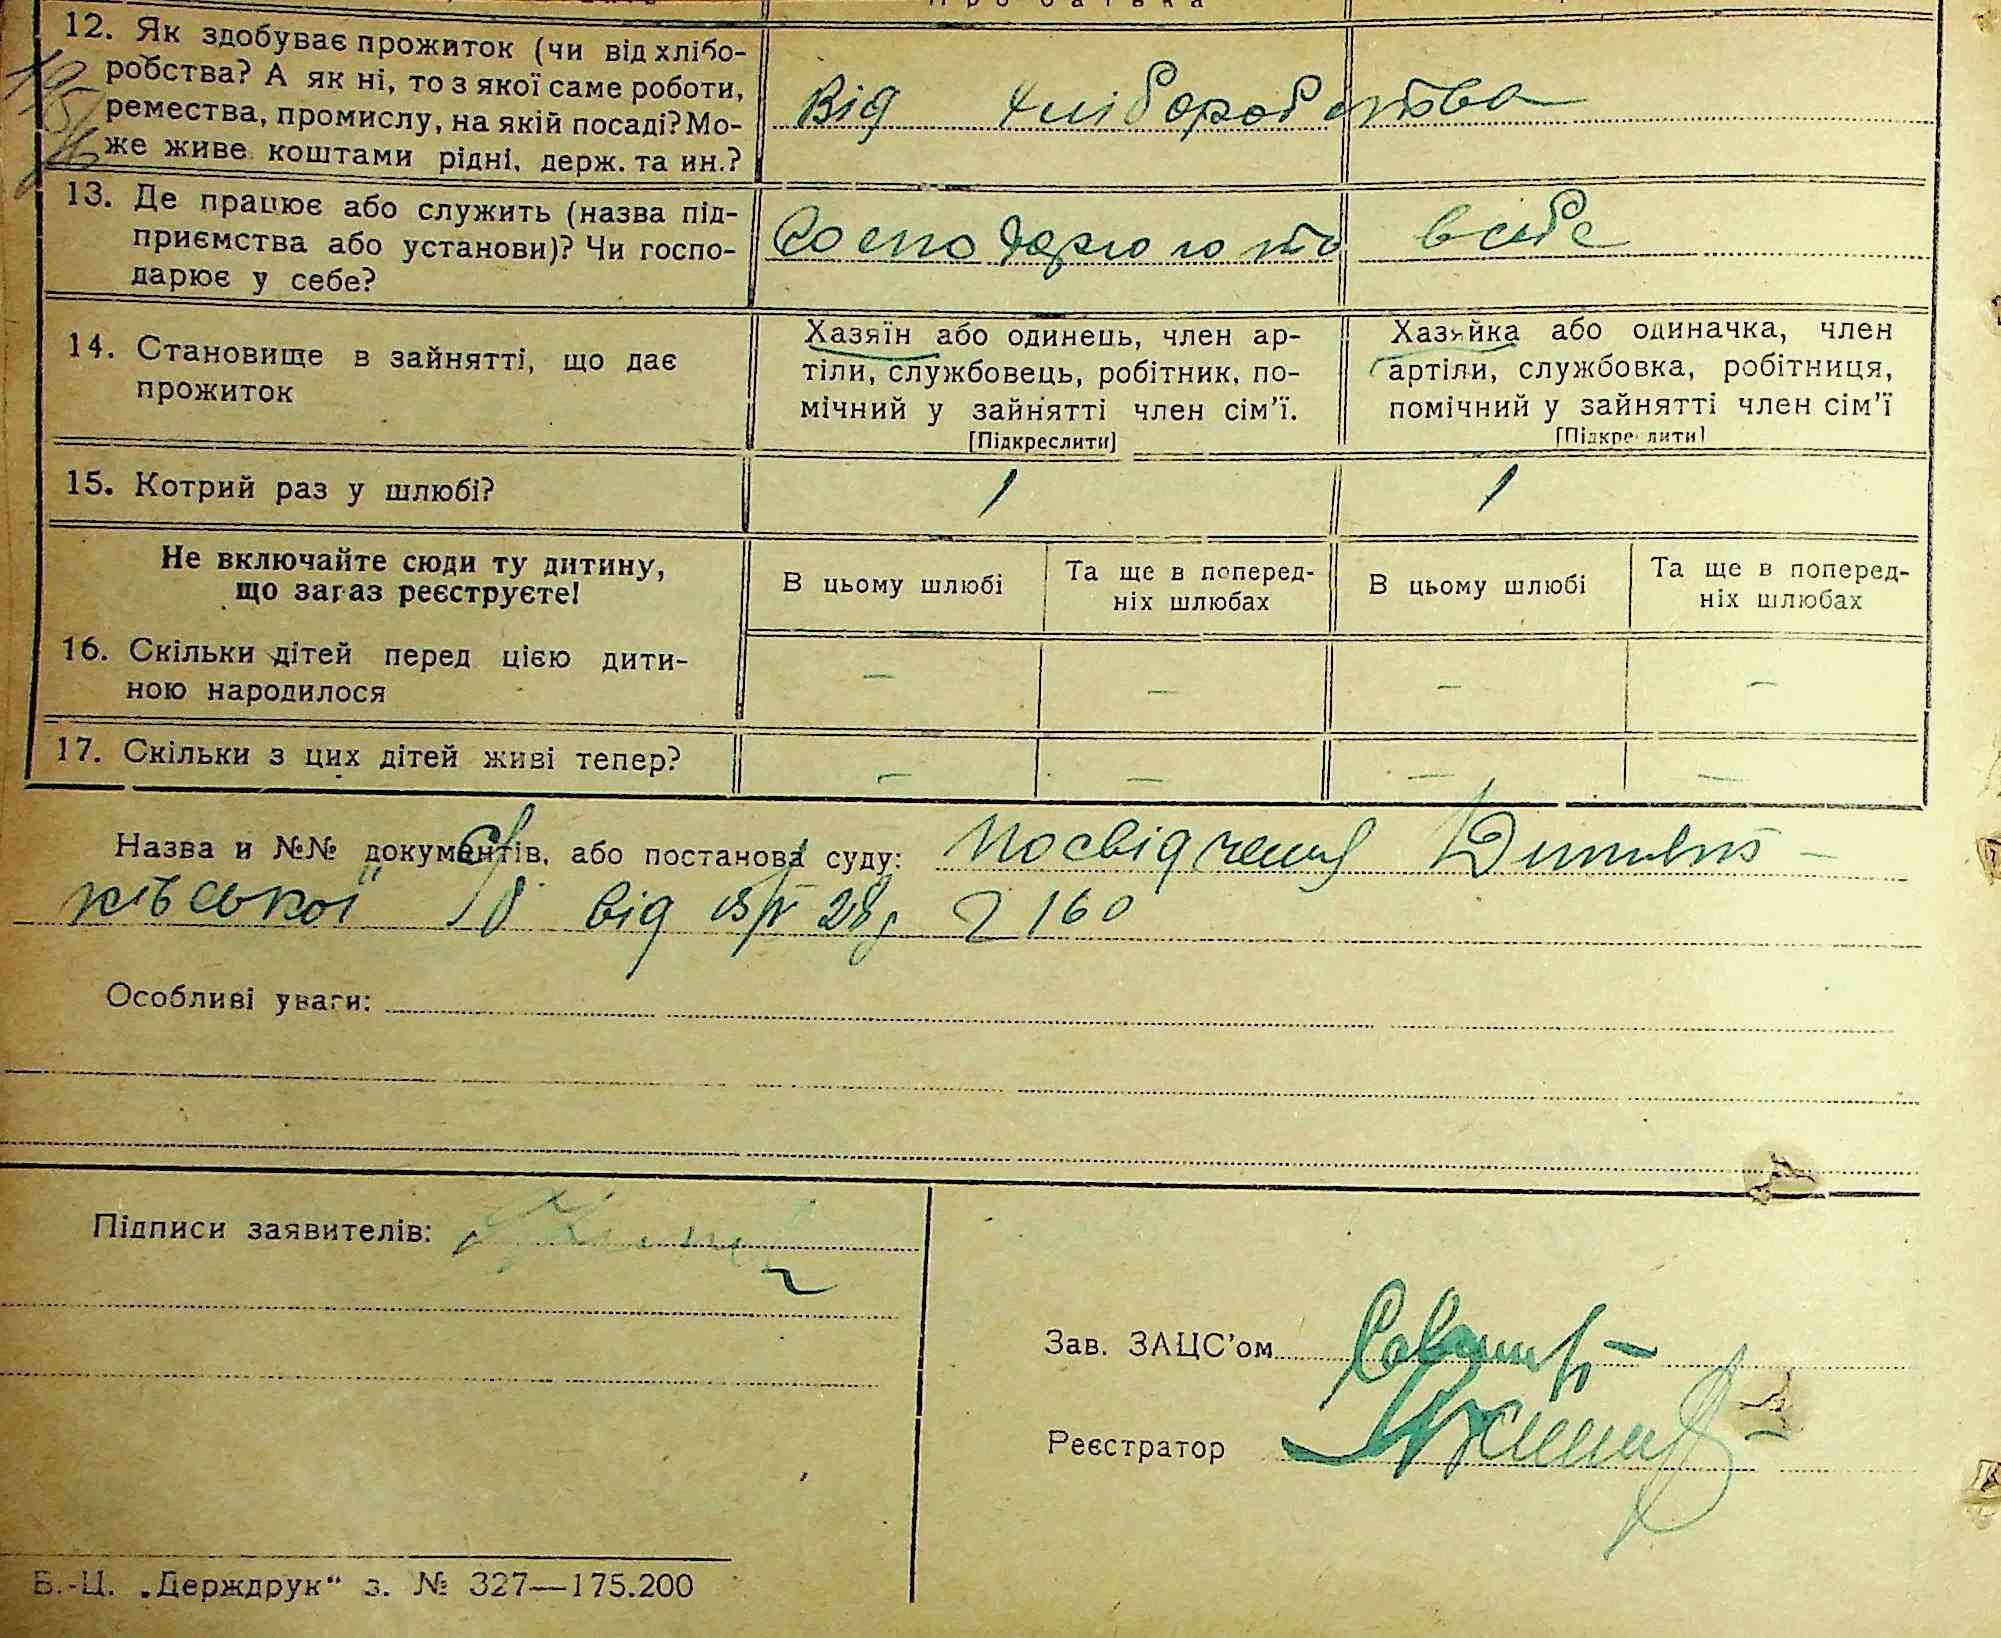 Про батька
12. Як здобуває прожиток (чи від хлібо-
робства? А як ні, то з якої саме роботи,
ремества, промислу, на якій посаді? Мо-
же живе коштами рідні, держ. та ин.?
Від хліборобства
13. Де працює або служить (назва під-
приємства або установи)? Чи госпо-
дарює у себе?
Господарюють в себе
14. Становище в зайнятті, що дає
прожиток
Хазяїн або одинець, член ар-
тіли, службовець, робітник, по-
мічний у зайнятті член сім'ї.
[Підкреслити]
Хазяйка або одиначка, член
артіли, службовка, робітниця,
помічний у зайнятті член сім'ї
[Підкреслити]
15. Котрий раз у шлюбі?
1 1
Не включайте сюди ту дитину,
що зараз реєструєте!
В цьому шлюбі
Та ще в поперед-
ніх шлюбах
В цьому шлюбі
Та ще в поперед-
ніх шлюбах
16. Скільки дітей перед цією дити-
ною народилося
– – – –
17. Скільки з цих дітей живі тепер?
– – – –
Назва и №№ документів, або постанова суду: Посвідчення
ківської від 28 160
Особливі уваги:
Підписи заявителів:
Зав. ЗАЦС'ом
Реєстратор
Б.-Ц. „Держдрук“ з. № 327—175.200